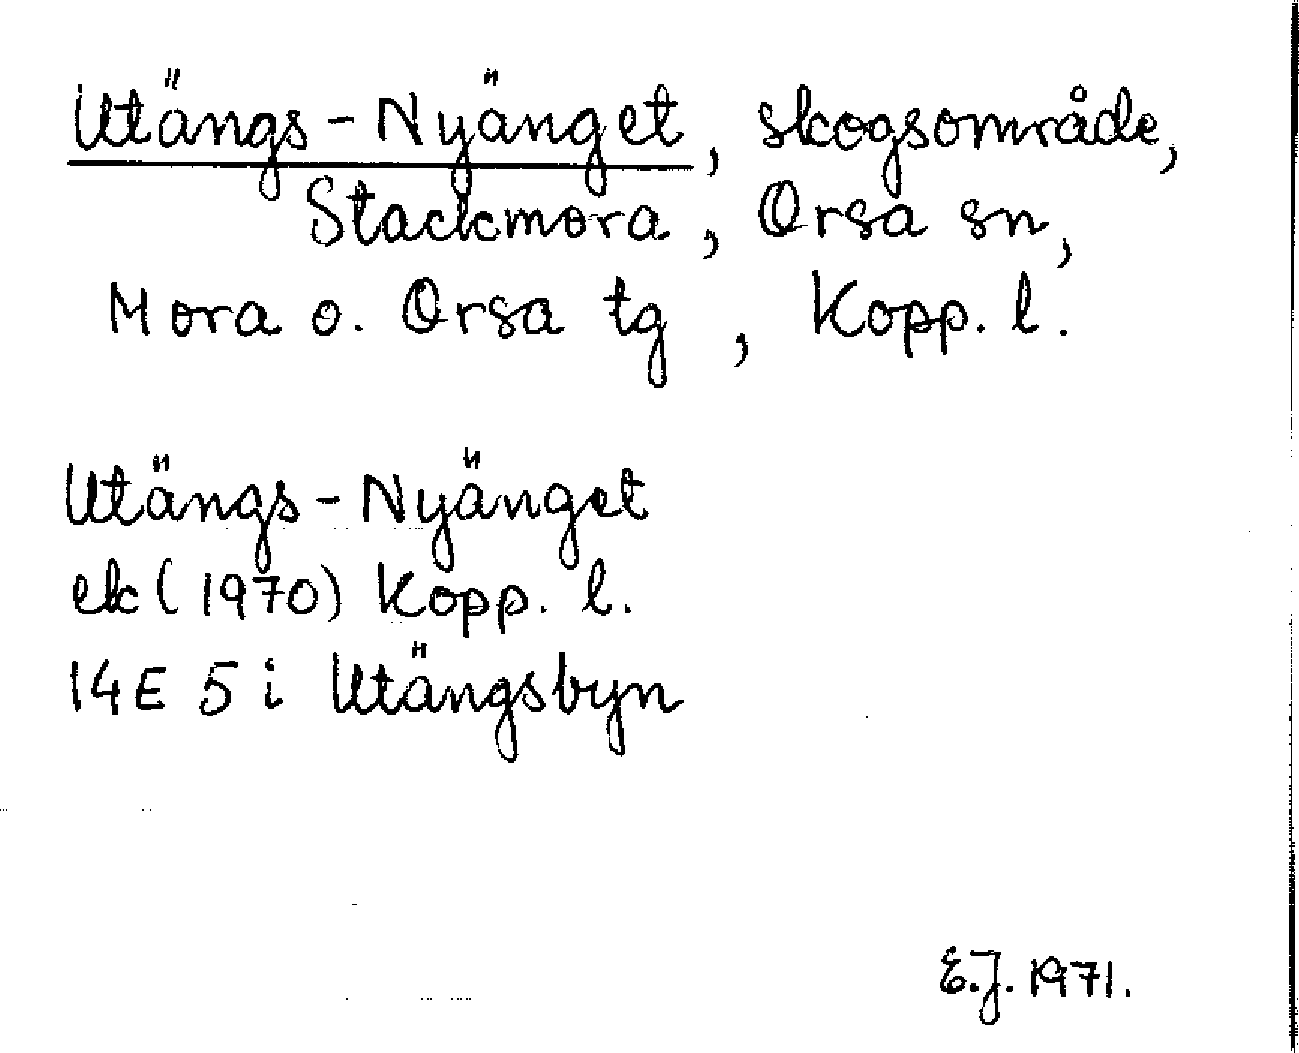 Utängs-Nyänget, skogsområde,
Stackmora, Orsa sn,
Mora o. Orsa tg, Kopp. l.
Utängs-Nyänget
ek (1970) Kopp. l.
14E 5 i Utängsbyn
E.J. 1971.